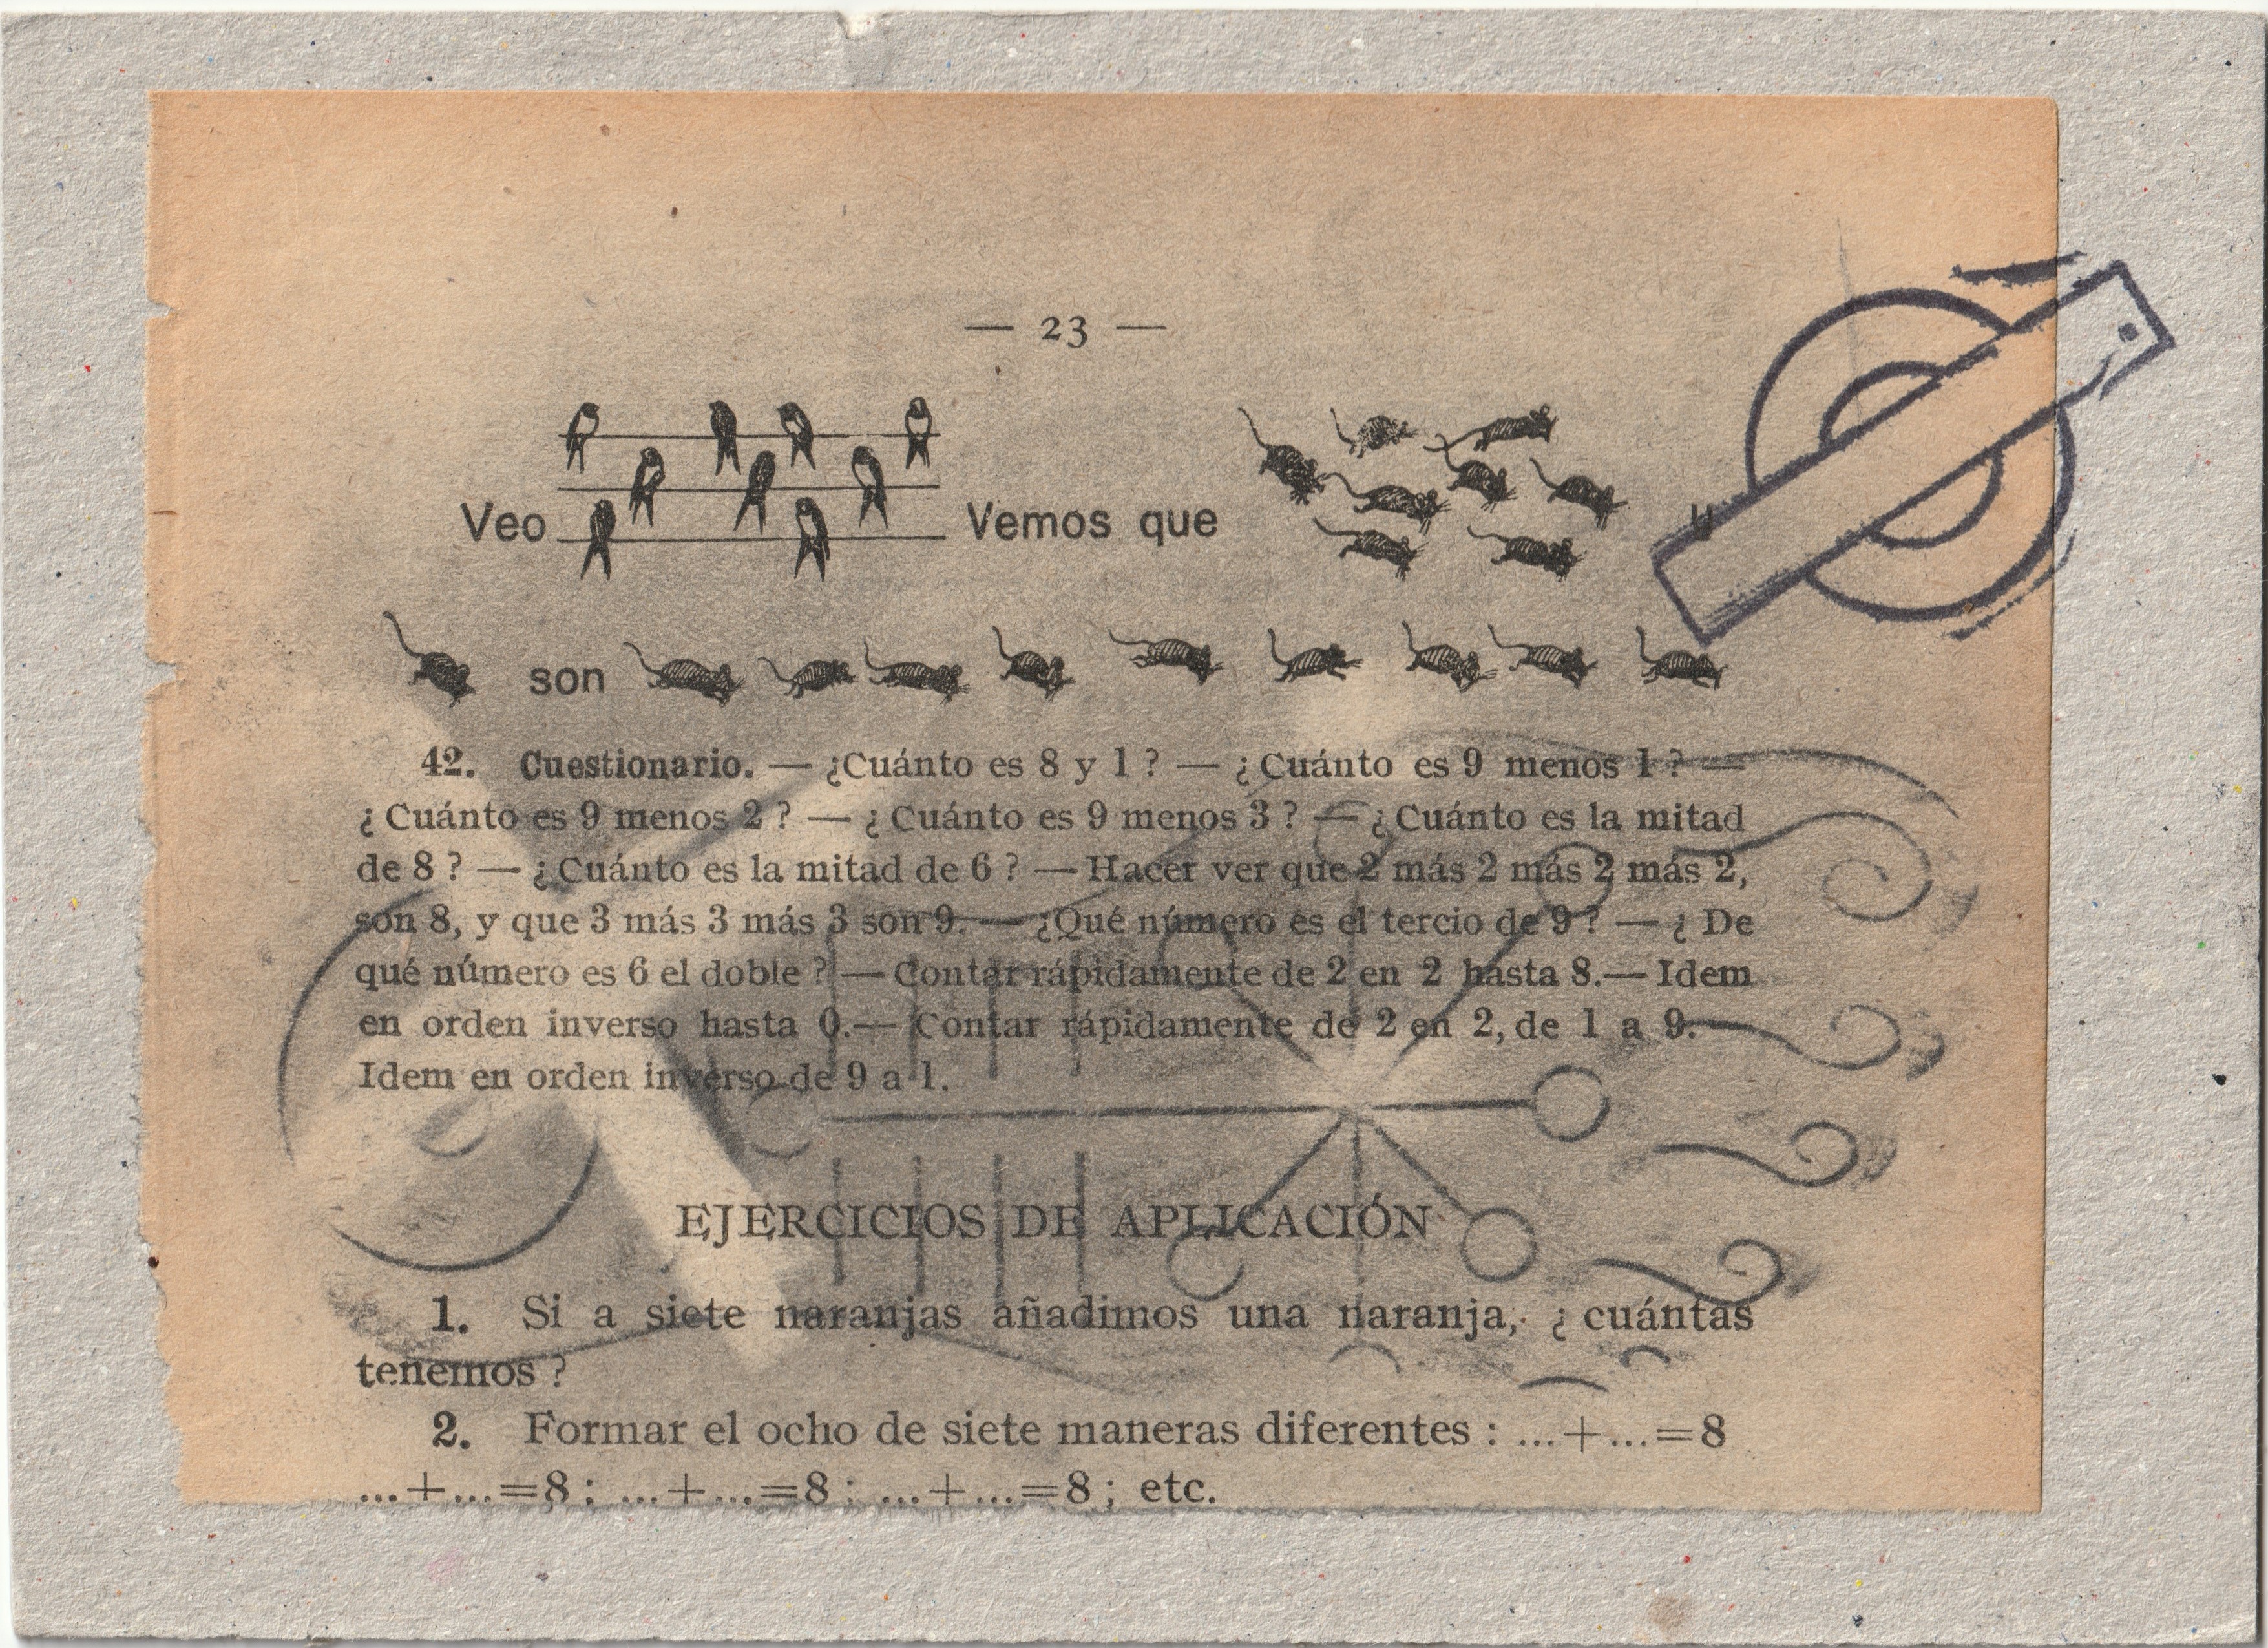 — 23 —
Veo Vemos que y
son
42. Cuestionario. — ¿Cuánto es 8 y 1 ? — ¿ Cuánto es 9 menos 1 ? —
¿ Cuánto es 9 menos 2 ? — ¿ Cuánto es 9 menos 3 ? — ¿ Cuánto es la mitad
de 8 ? — ¿ Cuánto es la mitad de 6 ? — Hacer ver que 2 más 2 más 2 más 2,
son 8, y que 3 más 3 más 3 son 9. — ¿Qué número es el tercio de 9 ? — ¿ De
qué número es 6 el doble ? — Contar rápidamente de 2 en 2 hasta 8.— Idem
en orden inverso hasta 0.— Contar rápidamente de 2 en 2, de 1 a 9.—
Idem en orden inverso de 9 a 1.
EJERCICIOS DE APLICACIÓN
1. Si a siete naranjas añadimos una naranja, ¿ cuántas
tenemos ?
2. Formar el ocho de siete maneras diferentes : ...+...=8
...+...=8 ; ...+...=8 ; ...+...=8 ; etc.